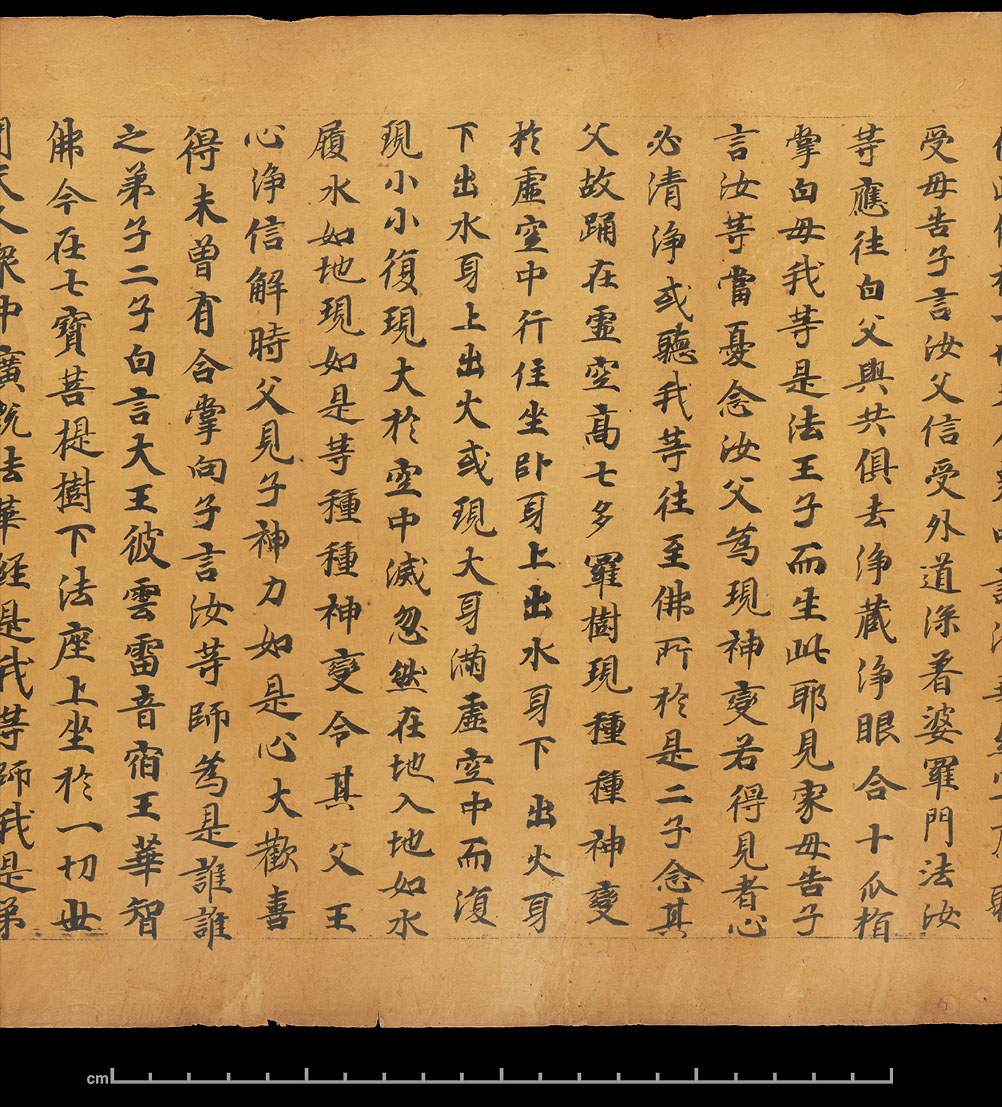 受母告子言汝父信受外道深著婆羅門法汝
等應往白父與共俱去淨藏淨眼合十爪指
掌白母我等是法王子而生此耶見家母告子
言汝等當憂念汝父為現神變若得見者心
必清淨或聽我等往至佛所於是二子念其
父故踊在虛空高七多羅樹現種種神變
於虛空中行住坐卧身上出水身下出火身
下出水身上出火或現大身滿虛空中而復
現小小復現大於空中滅忽然在地入地如水
履水如地現如是等種種神變令其父王
心淨信解時父見子神力如是心大歡喜
得未曾有合掌向子言汝等師為是誰誰
之弟子二子白言大王彼雲雷音宿王華智
佛今在七寶菩提樹下法座上坐於一切世
間天人眾中廣說法華經是我等師我是弟
cm